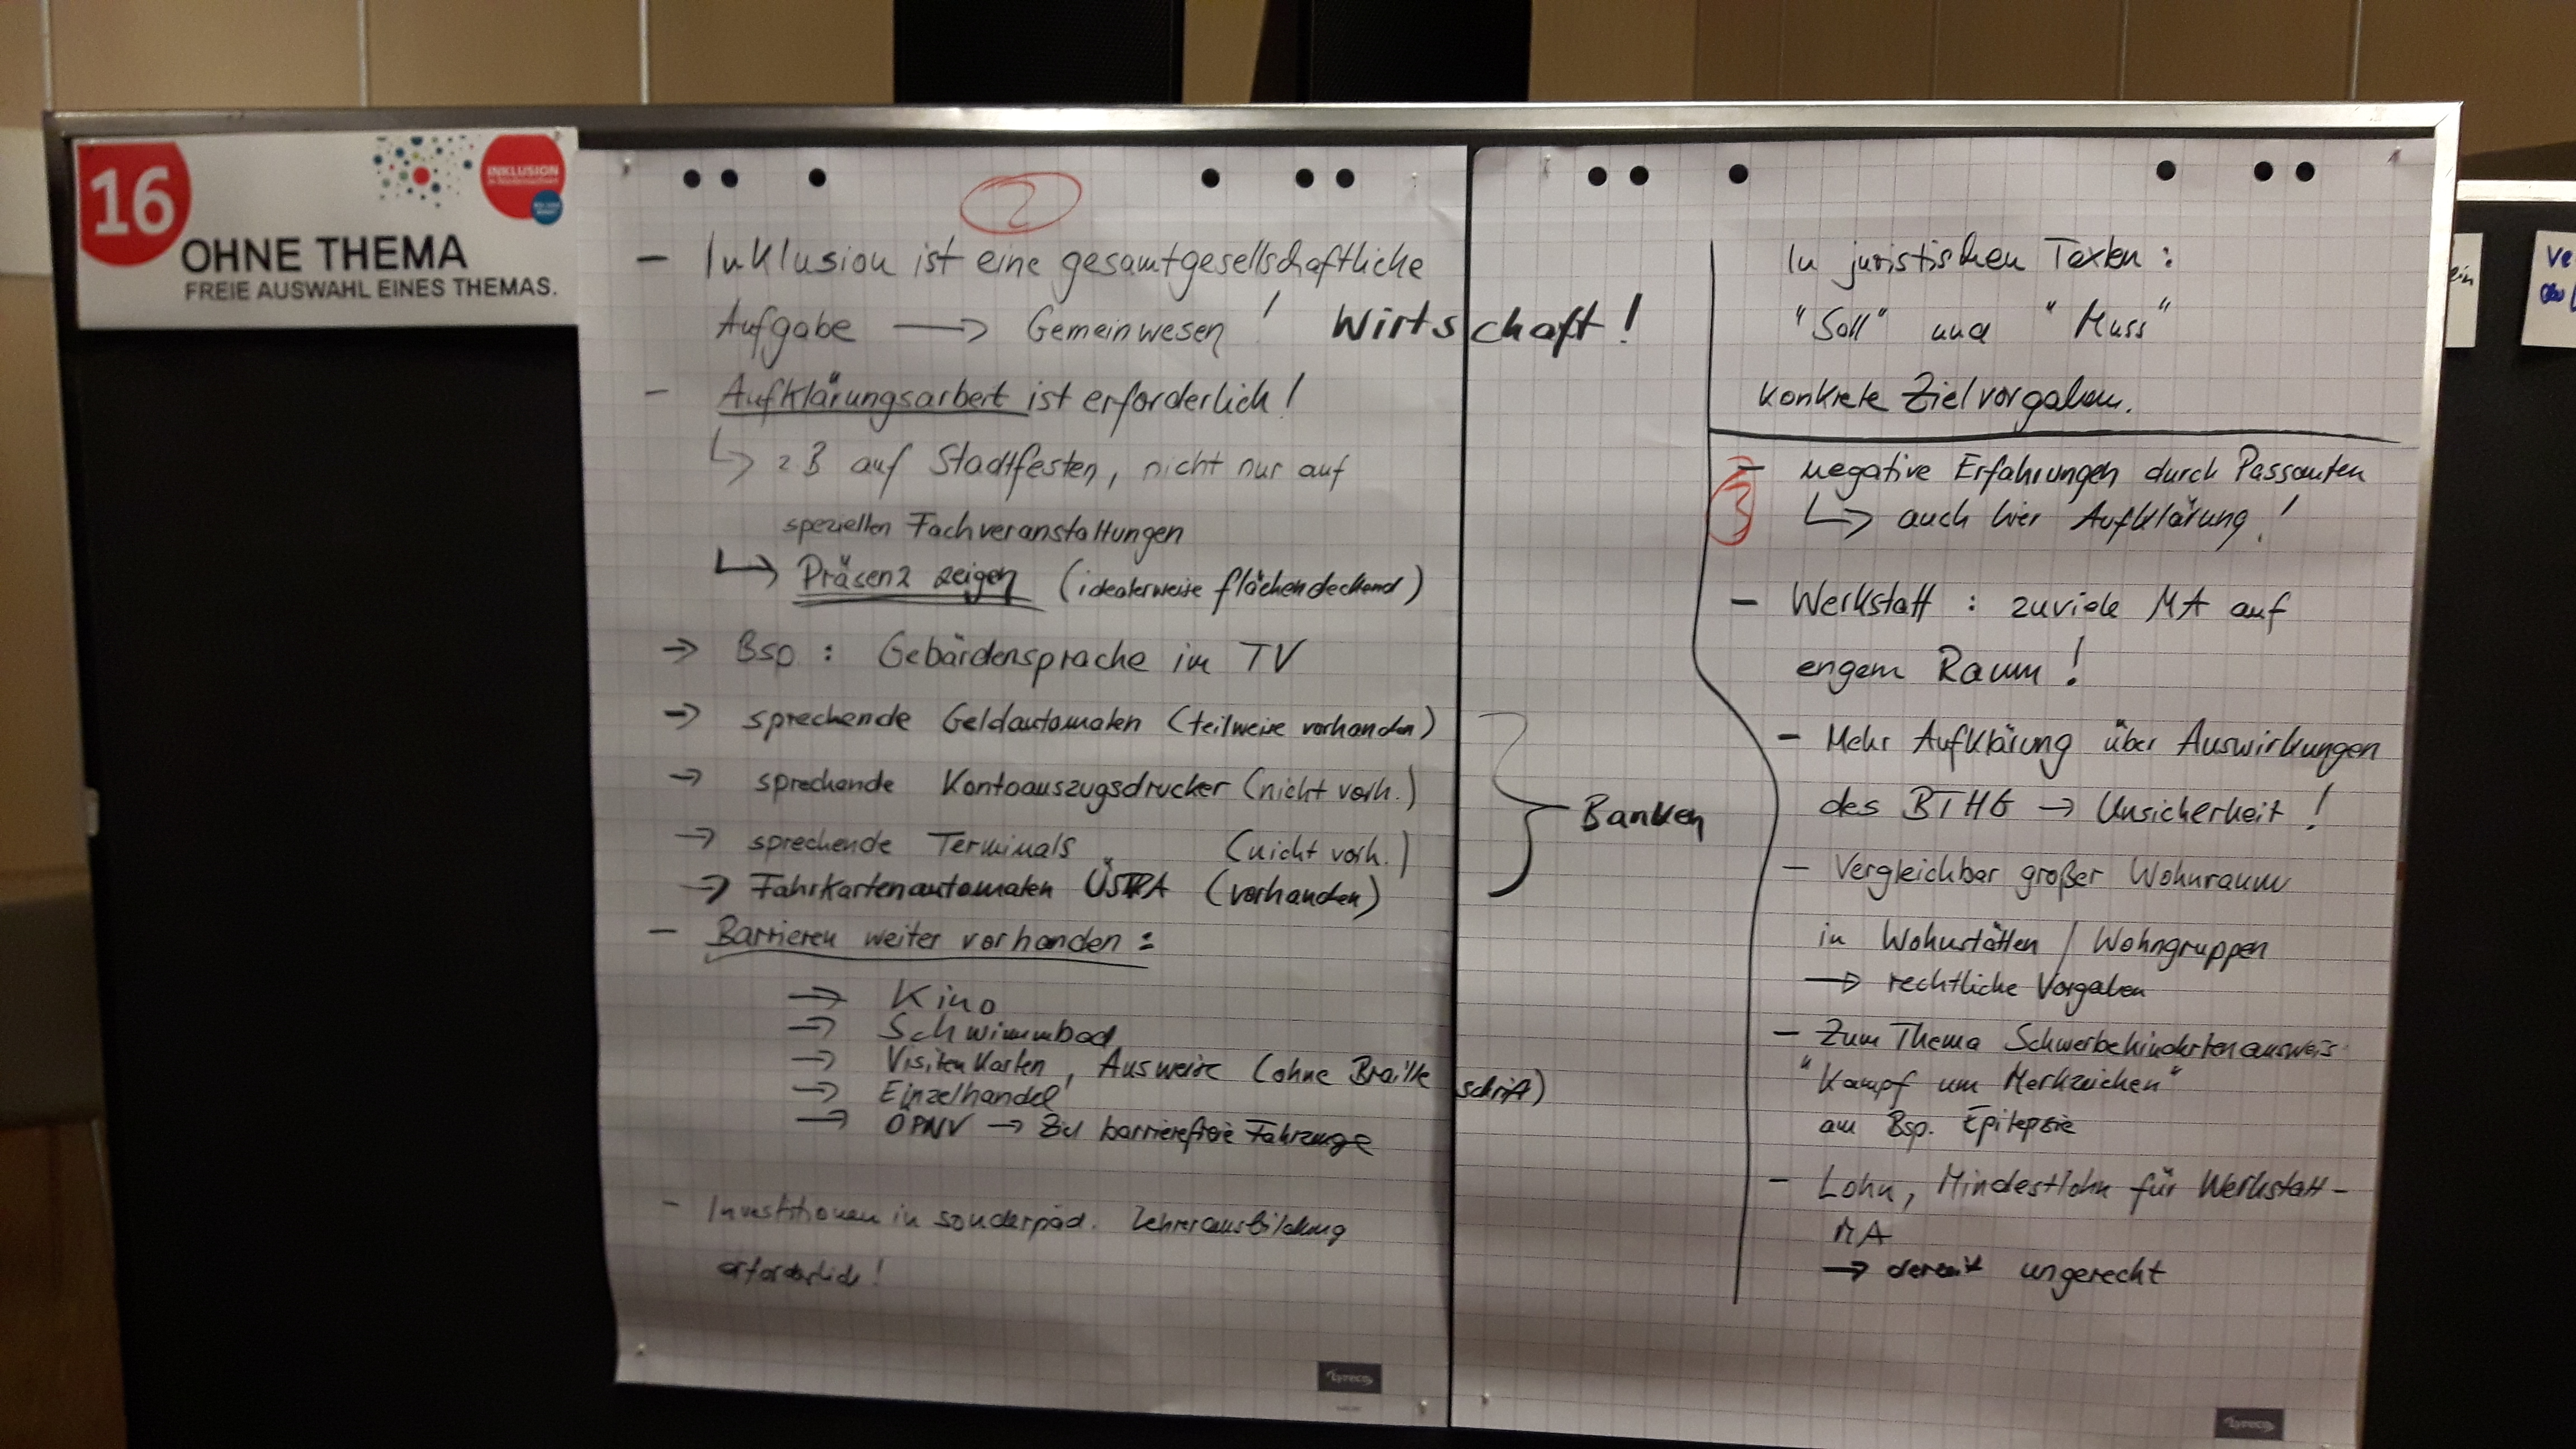 16
INKLUSION
OHNE THEMA
FREIE AUSWAHL EINES THEMAS.
2
- Inklusion ist eine gesamtgesellschaftliche
Aufgabe → Gemeinwesen! Wirtschaft!
- Aufklärungsarbeit ist erforderlich!
↳ zB auf Stadtfesten, nicht nur auf
speziellen Fachveranstaltungen
↳ Präsenz zeigen (idealerweise flächendeckend)
→ Bsp: Gebärdensprache im TV
→ sprechende Geldautomaten (teilweise vorhanden)
→ sprechende Kontoauszugsdrucker (nicht vorh.)
→ sprechende Terminals (nicht vorh.)
→ Fahrkartenautomaten ÜSTRA (vorhanden)
Banken
- Barrieren weiter vorhanden:
→ Kino
→ Schwimmbad
→ Visitenkarten, Ausweise (ohne Brailleschrift)
→ Einzelhandel
→ ÖPNV → Ziel barrierefreie Fahrzeuge
- Investitionen in sonderpäd. Lehrerausbildung
erforderlich!
Lyreco
In juristischen Texten:
"Soll" und "Muss"
konkrete Zielvorgaben.
3
- negative Erfahrungen durch Passanten
↳ auch hier Aufklärung!
- Werkstatt: zuviele MA auf
engem Raum!
- Mehr Aufklärung über Auswirkungen
des BTHG → Unsicherheit!
- Vergleichbar großer Wohnraum
in Wohnstätten / Wohngruppen
→ rechtliche Vorgaben
- Zum Thema Schwerbehindertenausweis
"Kampf um Merkzeichen"
am Bsp. Epilepsie
- Lohn, Mindestlohn für Werkstatt-
MA
→ derzeit ungerecht
Lyreco
ein